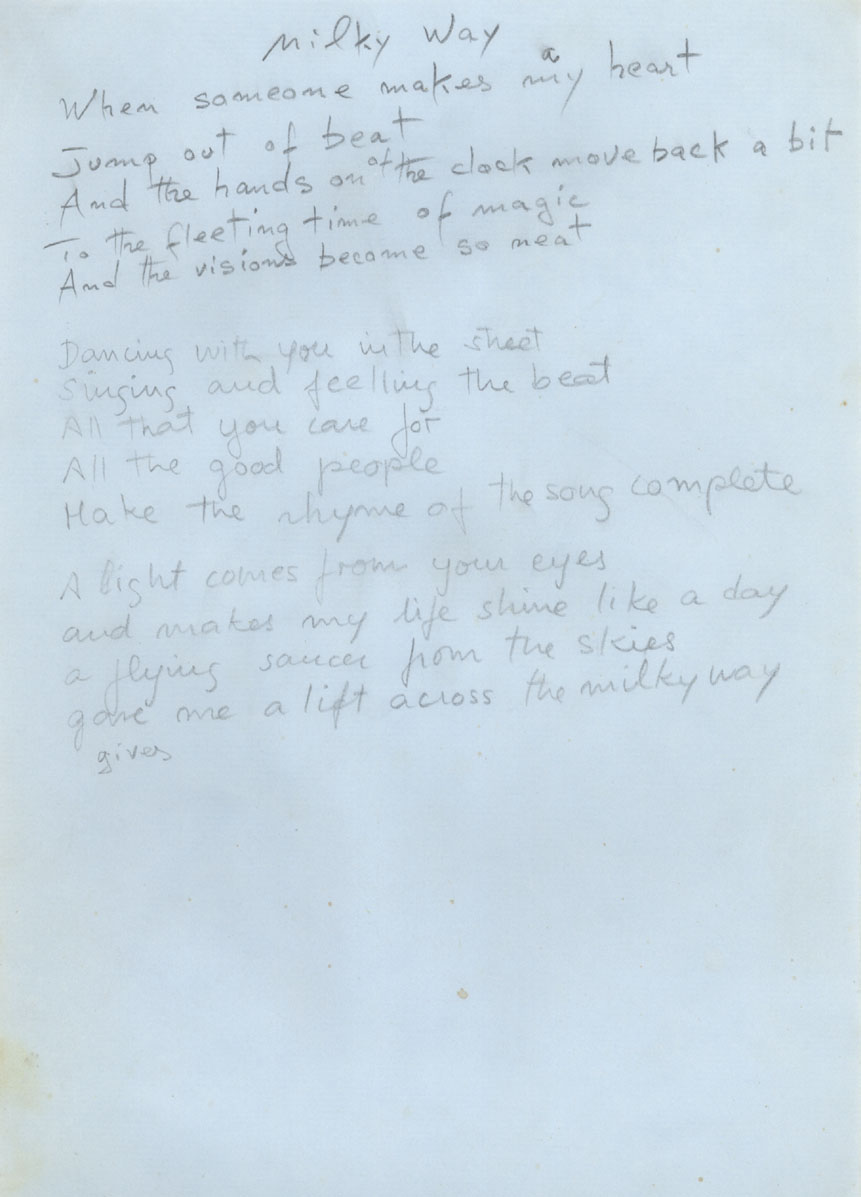 Milky Way
a
When someone makes my heart
Jump out of beat
of
And the hands on the clock move back a bit
To the fleeting time of magic
And the visions become so neat
Dancing with you in the street
Singing and feelling the beat
All that you care for
All the good people
Make the rhyme of the song complete
A light comes from your eyes
and makes my life shine like a day
a flying saucer from the skies
gave me a lift across the milky way
gives